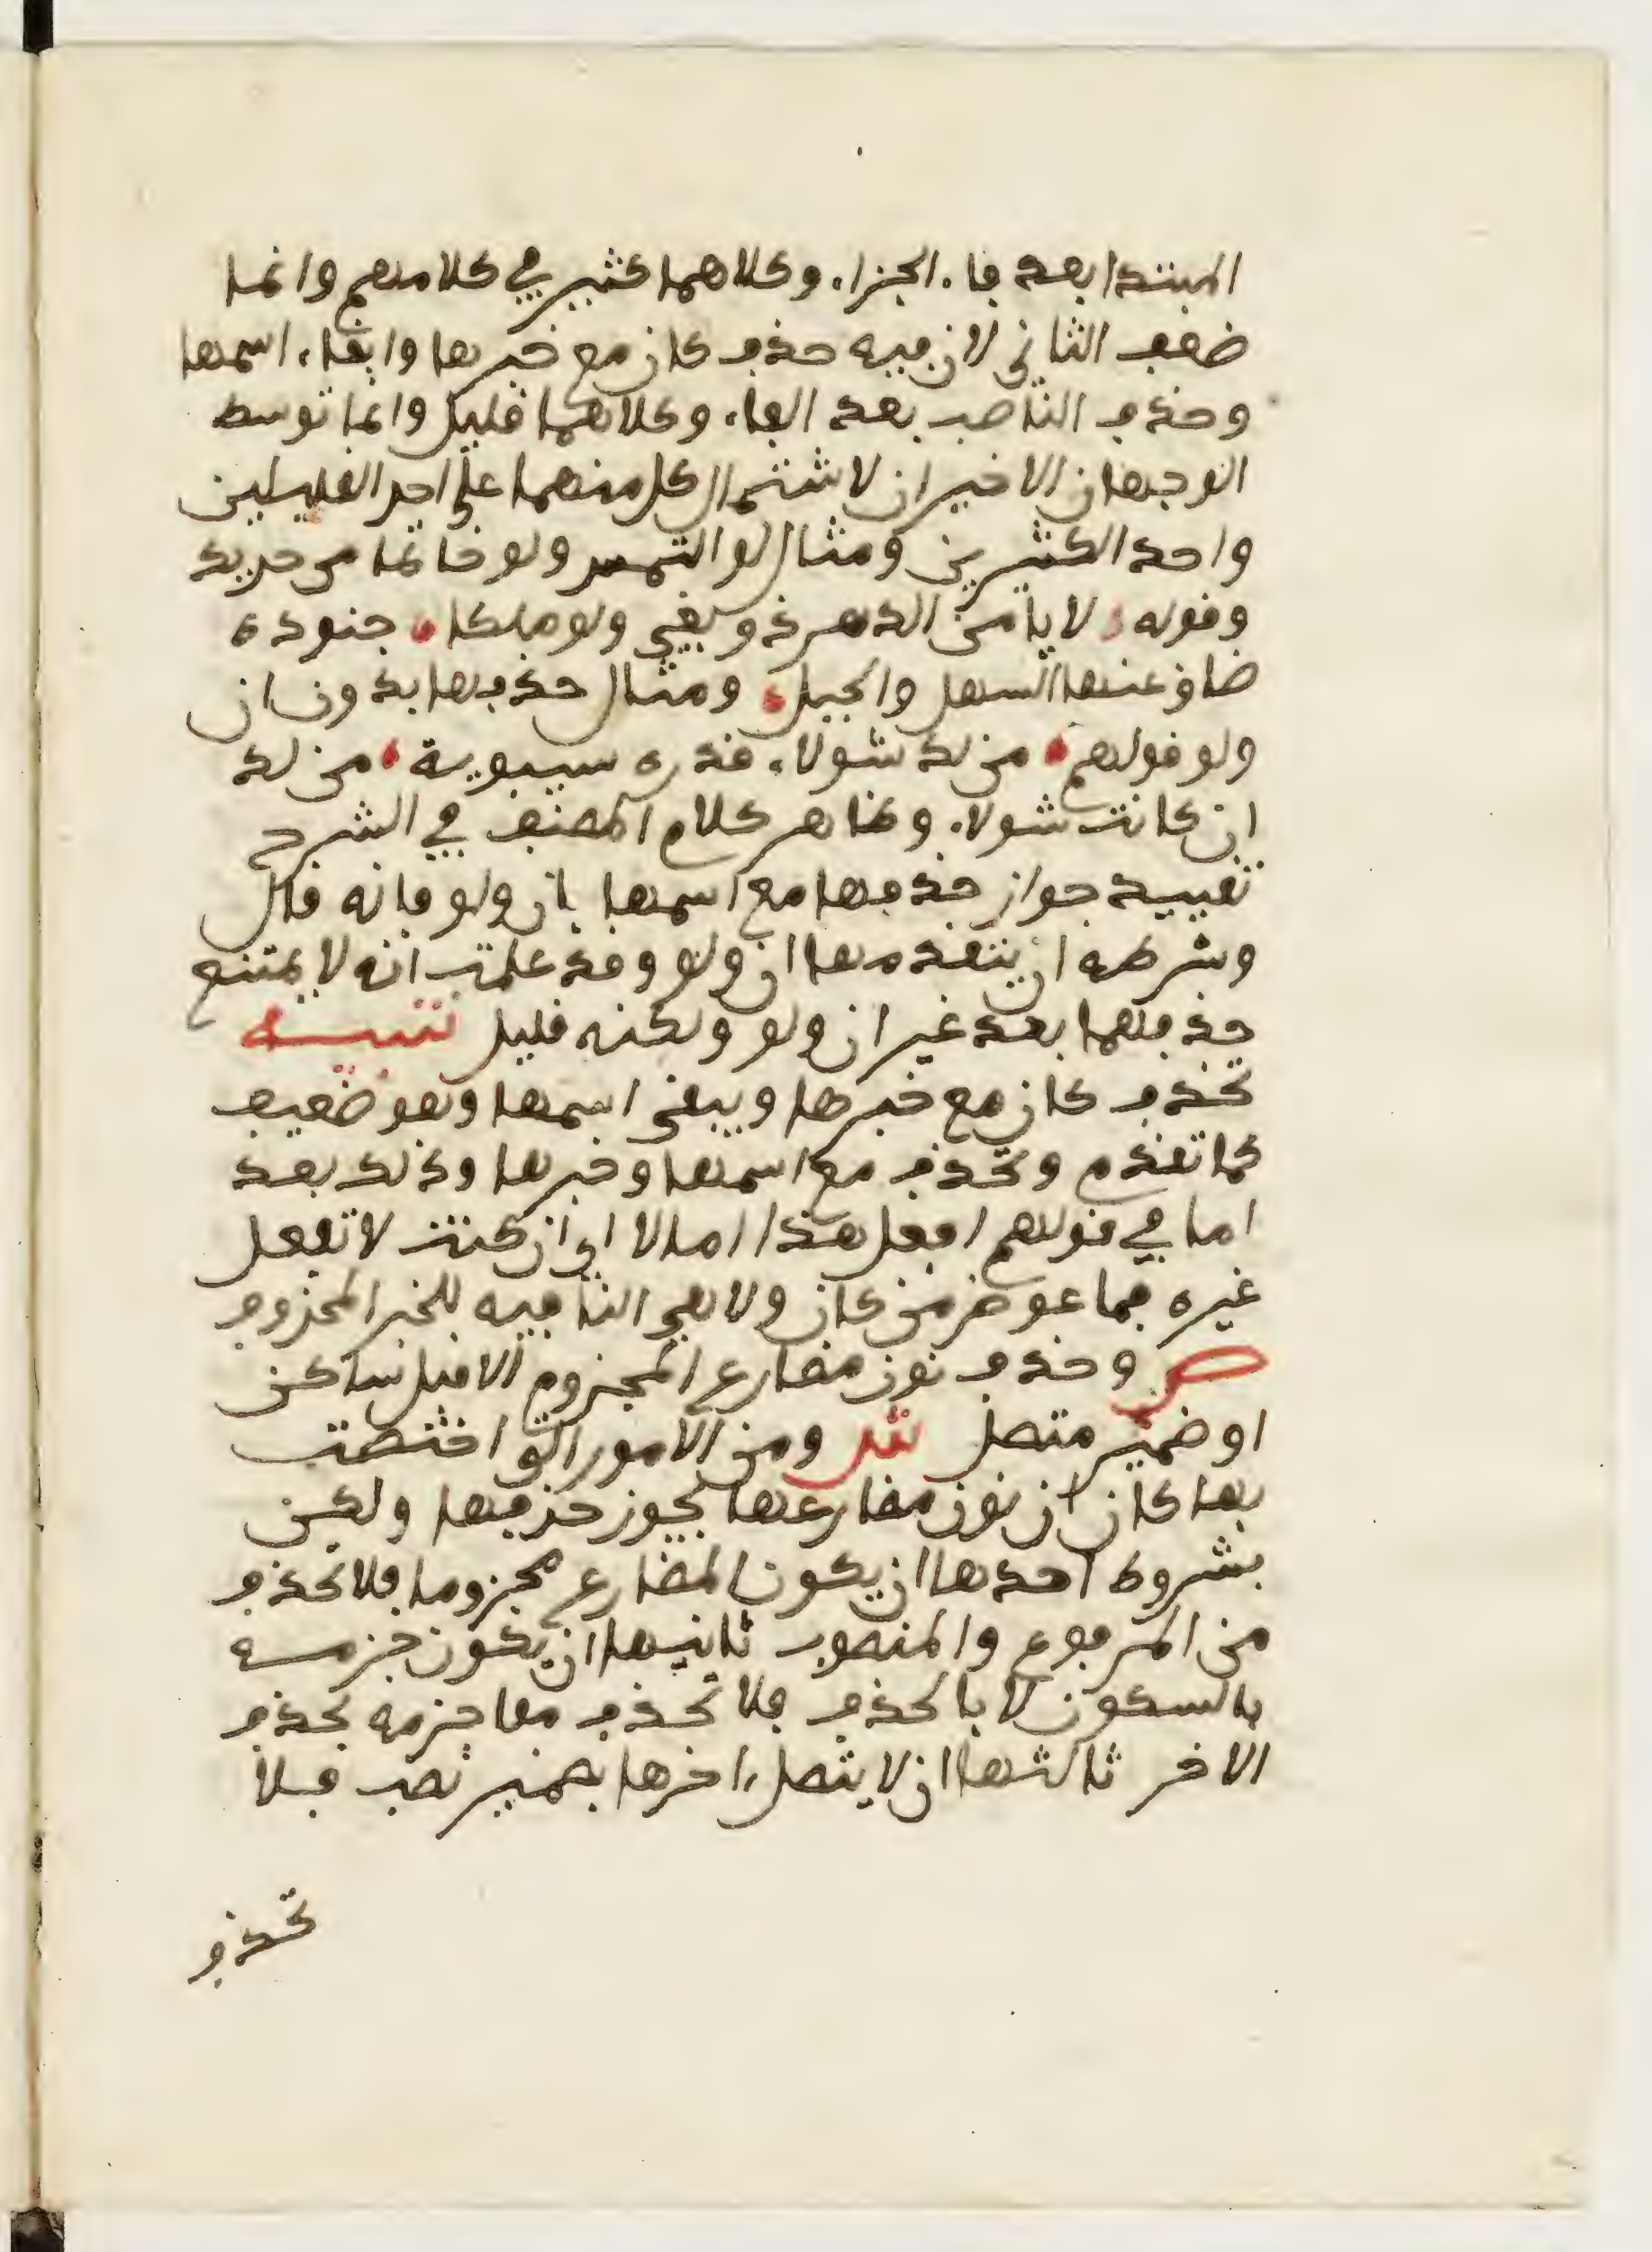 المبتدا بعد فاء الجزاء وكلاهما كثير في كلامهم وانما
ضعف الثاني لان فيه حذف كان مع خبرها وابقاء اسمها
وحذف الناصب بعد الفاء وكلاهما قليل وانما توسط
الوجهان الاخيران لاشتمال كل منهما على احد القليلين
واحد الكثيرين ومثال لو التمس ولو خاتما من حديد
وقوله لا يامن الدهر ذو بغي ولو ملكا جنوده
ضاق عنها السهل والجبل ومثال حذفها بدون ان
ولو قولهم من لد شولا، قدره سيبويه من لد
ان كانت شولا، وظاهر كلام المصنف في الشرح
تقييد جواز حذفها مع اسمها بان ولو فانه قال
وشرطه ان يتقدمها ان ولو وقد علمت انه لا يمتنع
حذفهما بعد غير ان ولو ولكنه قليل تنبيه
تحذف كان مع خبرها ويبقى اسمها وهو ضعيف
كما تقدم وتحذف مع اسمها وخبرها وذلك بعد
اما في قولهم افعل هذا اما لا اي ان كنت لا تفعل
غيره فما عوض من كان ولا هي النافيه للخبر المحذوف
ص وحذف نون مضارع المجزوم الا قبل ساكن
او ضمير متصل ش ومن الامور التي اختصت
بها كان ان نون مضارعها يجوز حذفها ولكن
بشروط احدها ان يكون المضارع مجزوما فلا تحذف
من المرفوع والمنصوب ثانيها ان يكون جزمه
بالسكون لا بالحذف فلا تحذف مما جزمه بحذف
الاخر ثالثها ان لا يتصل اخرها بضمير نصب فلا
تحذف